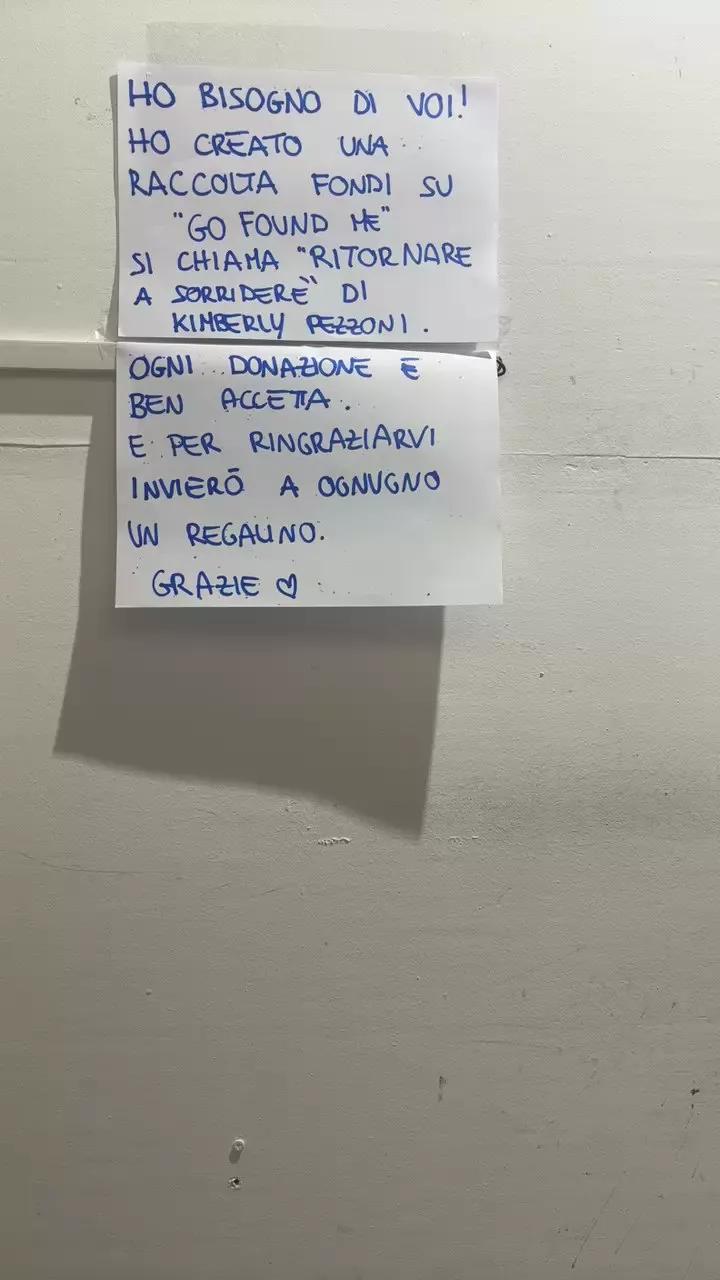 HO BISOGNO DI VOI!
HO CREATO UNA
RACCOLTA FONDI SU
"GO FOUND ME"
SI CHIAMA "RITORNARE
A SORRIDERE" DI
KIMBERLY PEZZONI.
OGNI DONAZIONE E
BEN ACCETTA.
E PER RINGRAZIARVI
INVIERÒ A OGNUGNO
UN REGALINO.
GRAZIE ♡